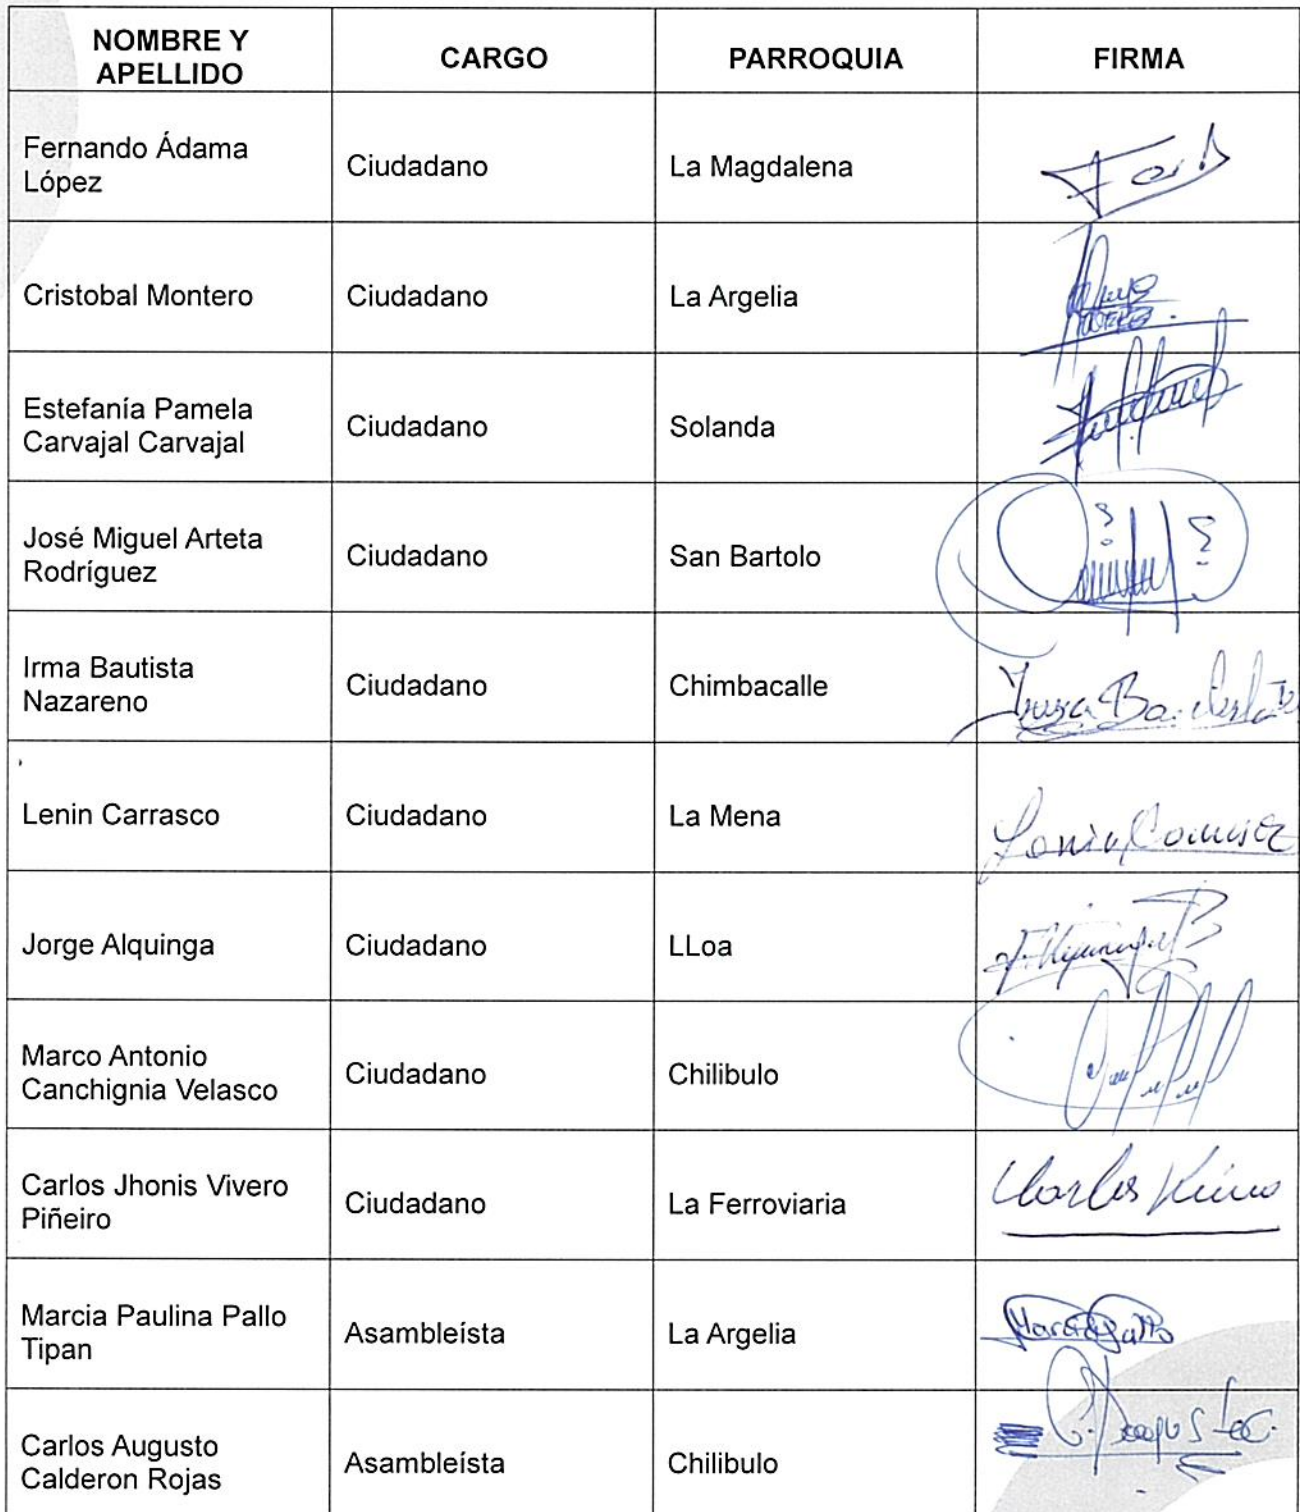 NOMBRE Y
APELLIDO
CARGO
PARROQUIA
FIRMA
Fernando Ádama
López
Ciudadano
La Magdalena
Cristobal Montero
Ciudadano
La Argelia
Estefanía Pamela
Carvajal Carvajal
Ciudadano
Solanda
José Miguel Arteta
Rodríguez
Ciudadano
San Bartolo
Irma Bautista
Nazareno
Ciudadano
Chimbacalle
Lenin Carrasco
Ciudadano
La Mena
Jorge Alquinga
Ciudadano
LLoa
Marco Antonio
Canchignia Velasco
Ciudadano
Chilibulo
Carlos Jhonis Vivero
Piñeiro
Ciudadano
La Ferroviaria
Carlos
Marcia Paulina Pallo
Tipan
Asambleísta
La Argelia
Marcia Pallo
Carlos Augusto
Calderon Rojas
Asambleísta
Chilibulo